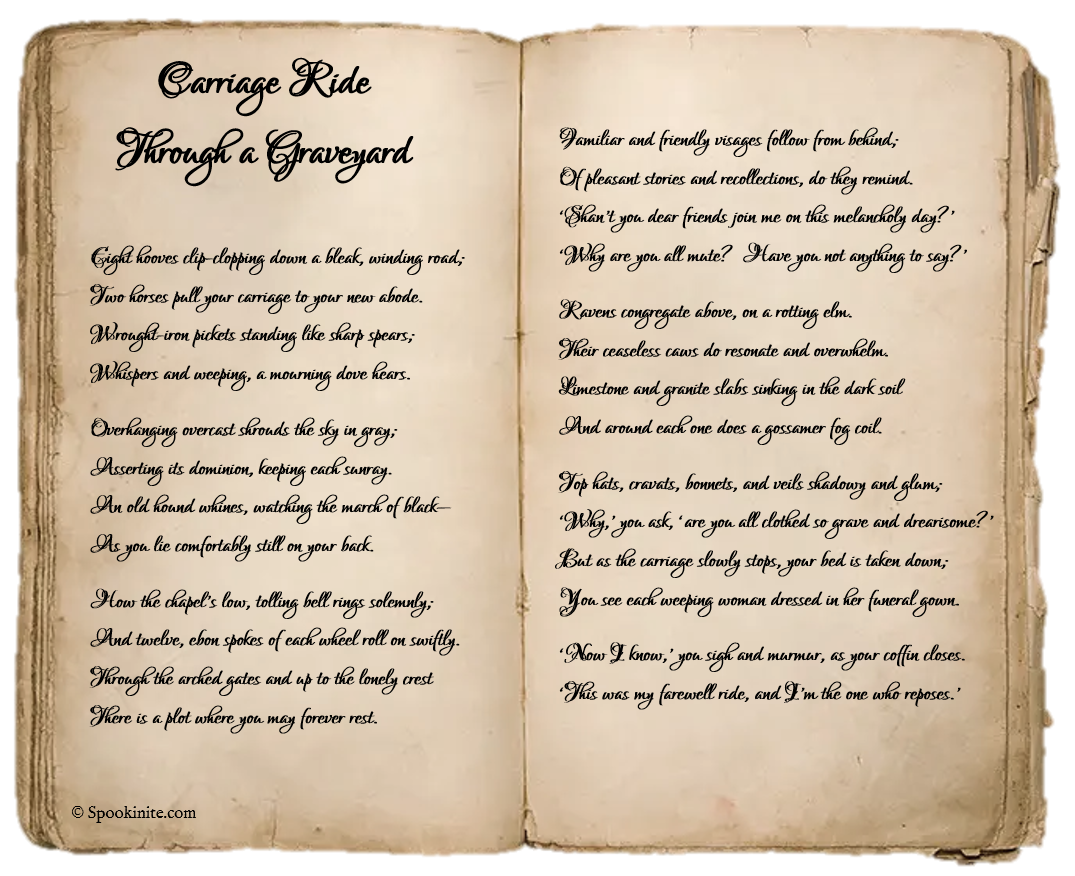 Carriage Ride
Through a Graveyard
Eight hooves clip-clopping down a bleak, winding road;
Two horses pull your carriage to your new abode.
Wrought-iron pickets standing like sharp spears;
Whispers and weeping, a mourning dove hears.
Overhanging overcast shrouds the sky in gray;
Asserting its dominion, keeping each sunray.
An old hound whines, watching the march of black—
As you lie comfortably still on your back.
How the chapel's low, tolling bell rings solemnly;
And twelve, ebon spokes of each wheel roll on swiftly.
Through the arched gates and up to the lonely crest
There is a plot where you may forever rest.
© Spookinite.com
Familiar and friendly visages follow from behind;
Of pleasant stories and recollections, do they remind.
'Shan't you dear friends join me on this melancholy day?'
'Why are you all mute? Have you not anything to say?'
Ravens congregate above, on a rotting elm.
Their ceaseless caws do resonate and overwhelm.
Limestone and granite slabs sinking in the dark soil
And around each one does a gossamer fog coil.
Top hats, cravats, bonnets, and veils shadowy and glum;
'Why,' you ask, 'are you all clothed so grave and drearisome?'
But as the carriage slowly stops, your bed is taken down;
You see each weeping woman dressed in her funeral gown.
'Now I know,' you sigh and murmur, as your coffin closes.
'This was my farewell ride, and I'm the one who reposes.'